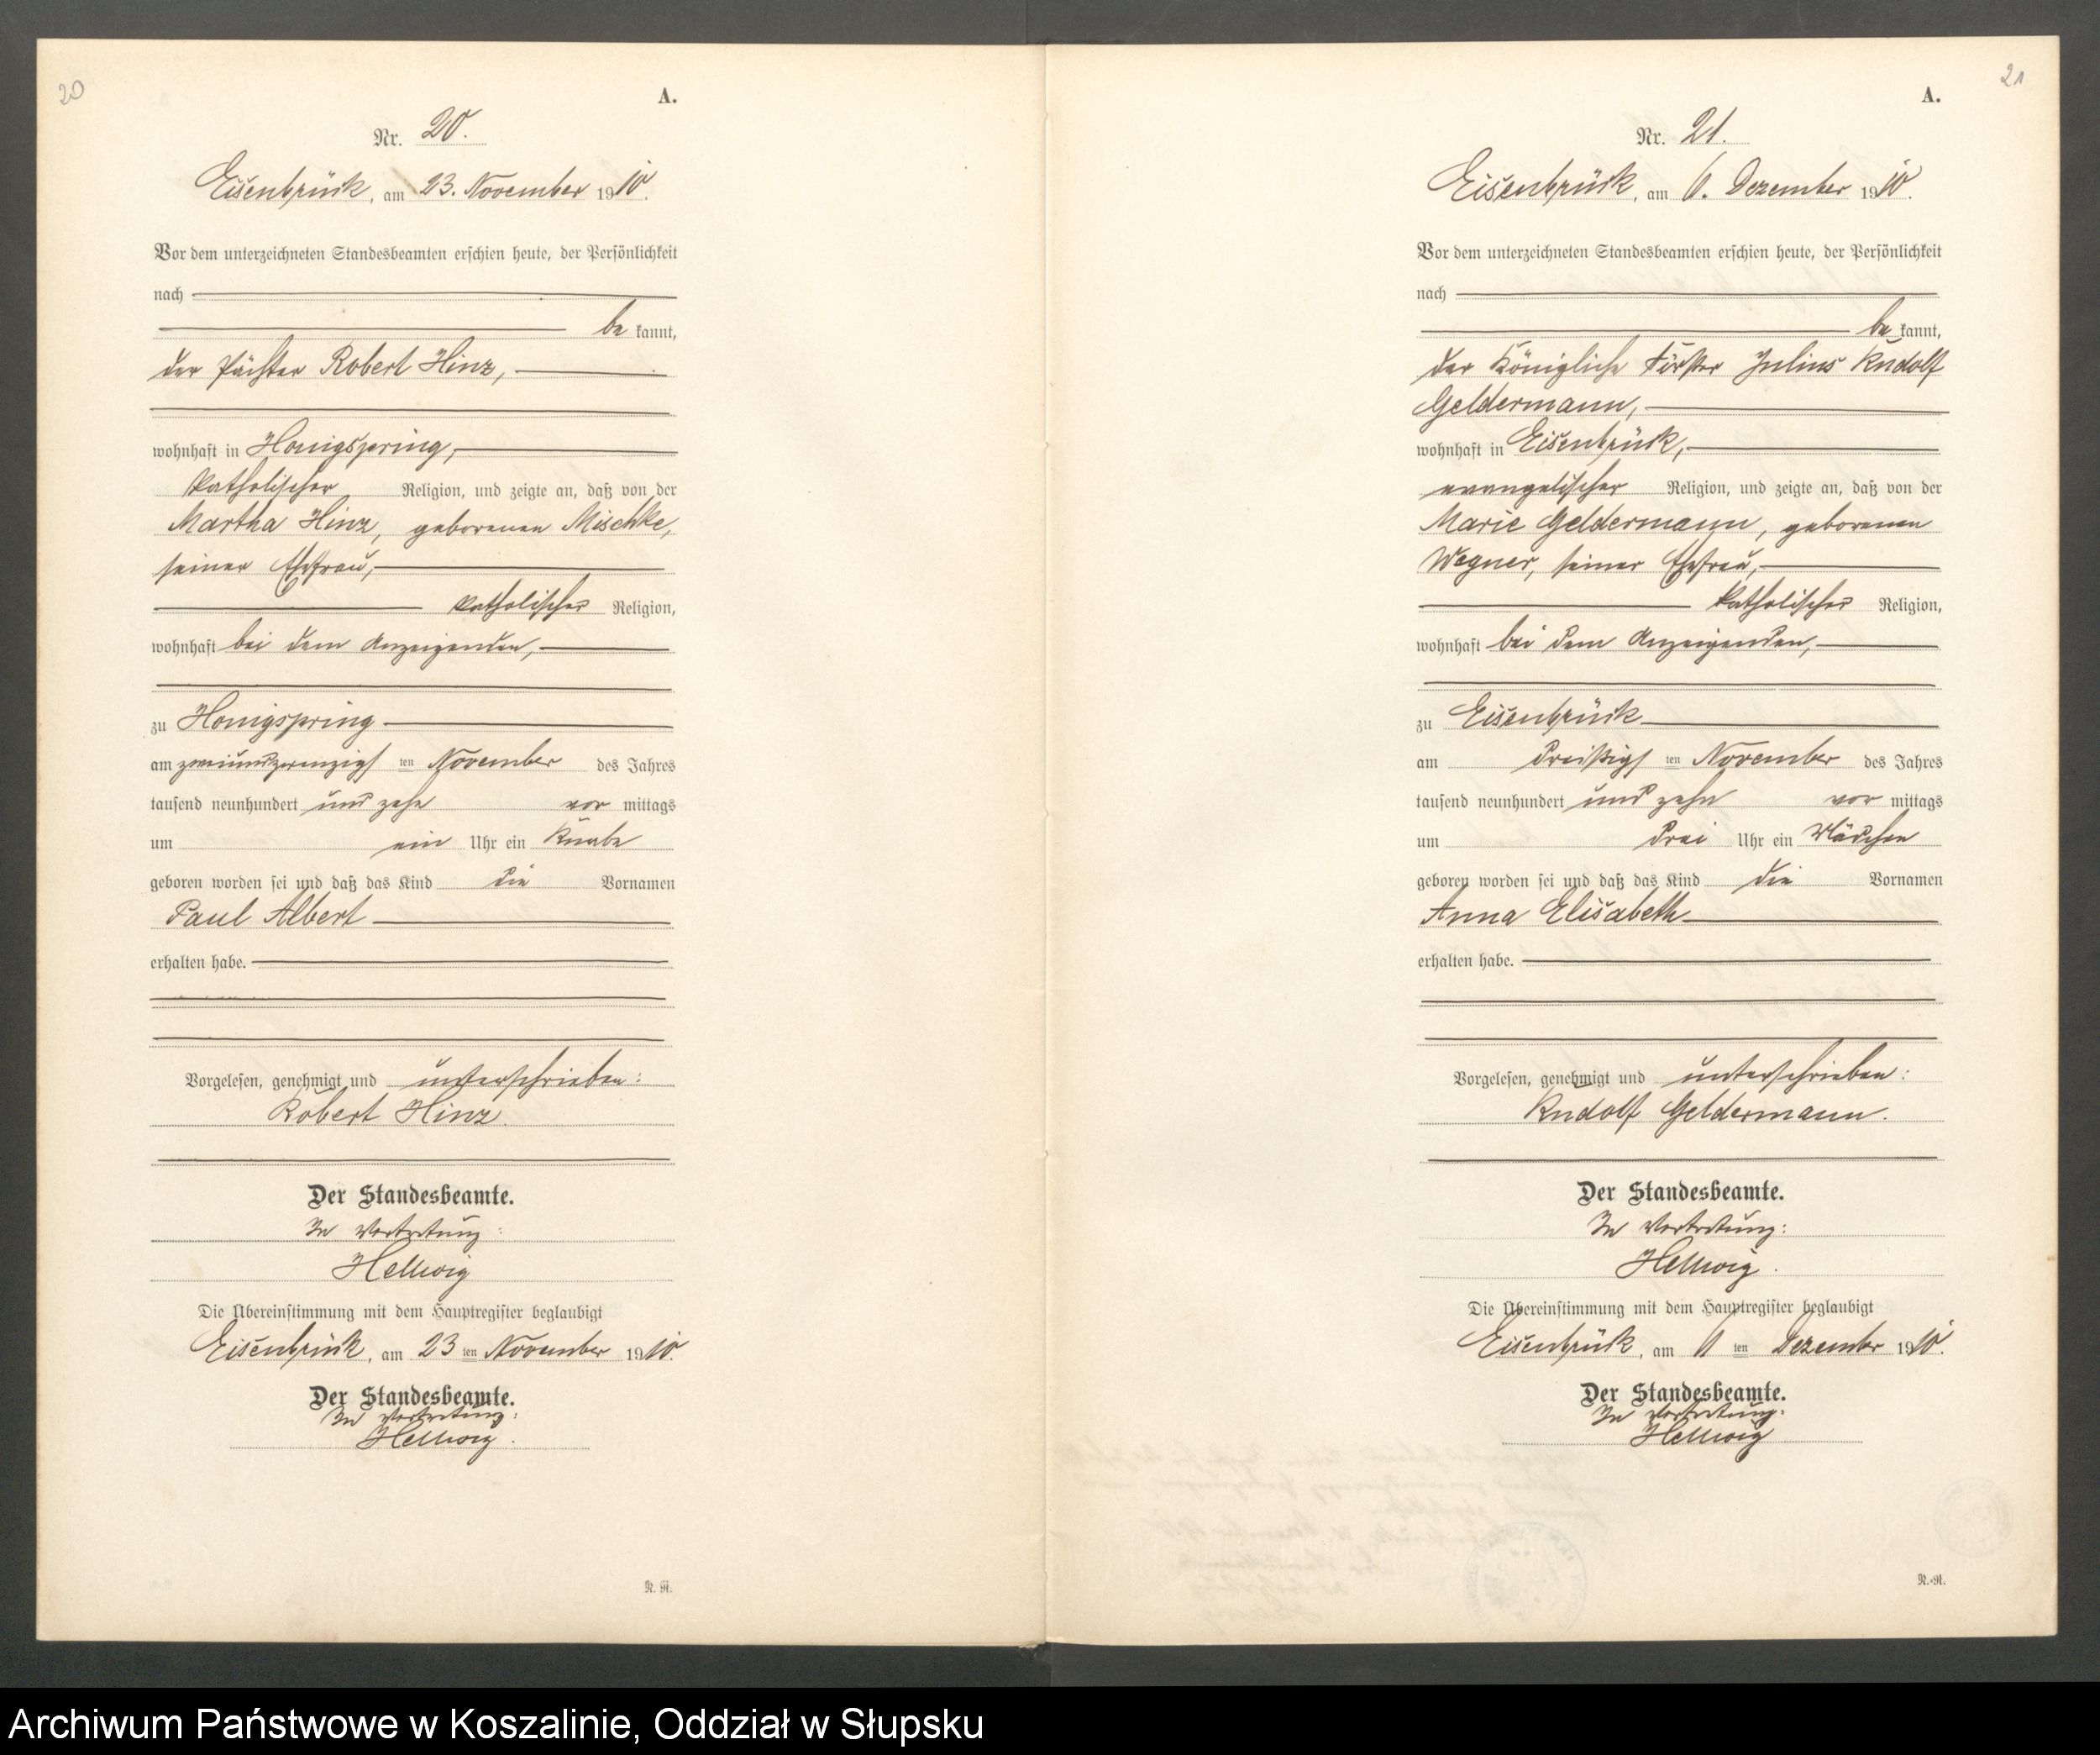 20
A.
Nr. 20.
Eisenbrück, am 23. November 1910.
Vor dem unterzeichneten Standesbeamten erschien heute, der Persönlichkeit
nach
be kannt,
der Pächter Robert Hinz,
wohnhaft in Honigspring,
katholischer Religion, und zeigte an, daß von der
Martha Hinz, geborenen Mischke,
seiner Ehefrau,
katholischer Religion,
wohnhaft bei dem Anzeigenden,
zu Honigspring
am zweiundzwanzigs ten November des Jahres
tausend neunhundert und zehn vor mittags
um ein Uhr ein Knabe
geboren worden sei und daß das Kind die Vornamen
Paul Albert
erhalten habe.
Vorgelesen, genehmigt und unterschrieben:
Robert Hinz.
Der Standesbeamte.
In Vertretung:
Hellwig
Die Übereinstimmung mit dem Hauptregister beglaubigt
Eisenbrück, am 23 ten November 1910.
Der Standesbeamte.
In Vertretung:
Hellwig.
N. R.
21
A.
Nr. 21.
Eisenbrück, am 6. Dezember 1910.
Vor dem unterzeichneten Standesbeamten erschien heute, der Persönlichkeit
nach
be kannt,
der Königliche Förster Julius Rudolf
Geldermann,
wohnhaft in Eisenbrück,
evangelischer Religion, und zeigte an, daß von der
Marie Geldermann, geborenen
Wegner, seiner Ehefrau,
katholischer Religion,
wohnhaft bei dem Anzeigenden,
zu Eisenbrück
am dreißigs ten November des Jahres
tausend neunhundert und zehn vor mittags
um drei Uhr ein Mädchen
geboren worden sei und daß das Kind die Vornamen
Anna Elisabeth
erhalten habe.
Vorgelesen, genehmigt und unterschrieben:
Rudolf Geldermann.
Der Standesbeamte.
In Vertretung:
Hellwig.
Die Übereinstimmung mit dem Hauptregister beglaubigt
Eisenbrück, am 6 ten Dezember 1910.
Der Standesbeamte.
In Vertretung:
Hellwig
N.-R.
Archiwum Państwowe w Koszalinie, Oddział w Słupsku